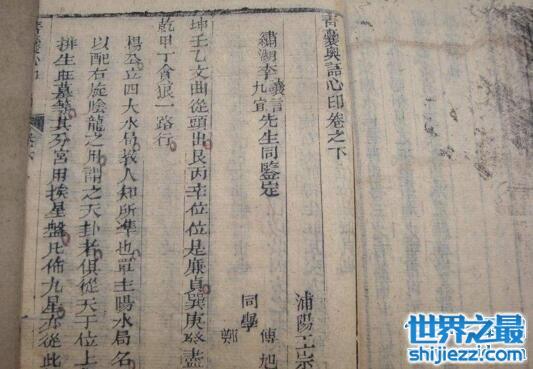 青囊奧語心印卷之下
浦陽王宗
繡湖李義言九宜先生同鑒定
同學傅旭鄭
坤壬乙文曲從頭出艮丙辛位位是廉貞巽庚癸盡
乾甲丁貪狼一路行
楊公立四大水局教人知所準也取主陽水局名
以配右旋陰龍之用謂之天卦者俱從天干位上
排生旺墓等其分宮用挨星盤凡佈九星亦從此
世界之最
shijiezz.com